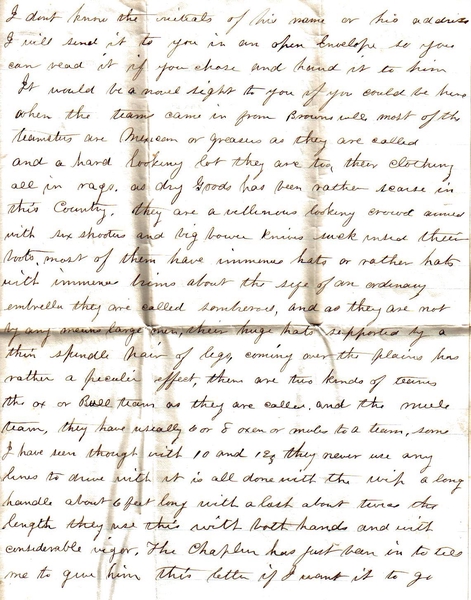 I dont know the initials of his name or his address
I will send it to you in an open Envelope so you
can read it if you chose and hand it to him
It would be a novel sight to you if you could be here
when the teams came in from Brownsville most of the
teamsters are Mexican or greasers as they are called
and a hard looking lot they are too, their clothing
all in rags. as dry Goods has been rather scarse in
this Country. they are a villenous looking crowd armed
with six shooters and big bowee knives suck insed their
boots, most of them have immence hats or rather hats
with immence brims about the size of an ordinary
umbrella they are called sombreros, and as they are not
by any means large men, their huge hats supported by a
thin spindle pair of legs, coming over the plains has
rather a peculier effect, there are two kinds of teams
the ox or Bull team as they are called. and the mule
team, they have usually 6 or 8 oxen or mules to a team, some
I have seen though with 10 and 12, they never use any
lines to drive with it is all done with the whip a long
handle about 6 feet long with a lash about twice the
length they use this with both hands and with
considerable vigor, The Chaplin has just been in to tell
me to give him this letter if I want it to go